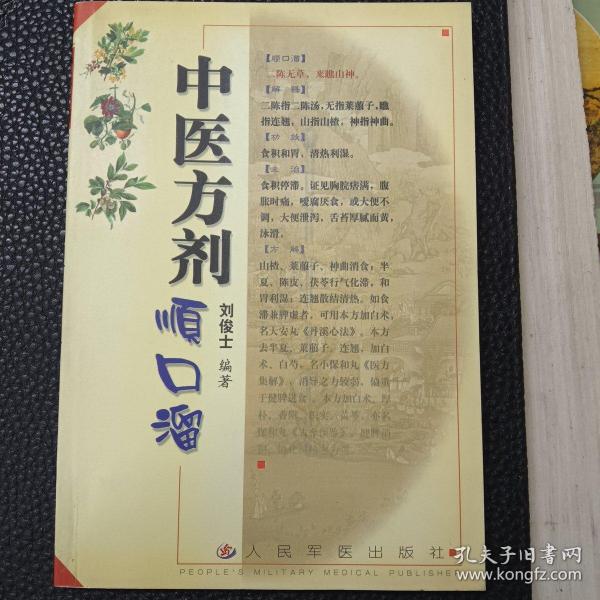 中医方剂
顺口溜
刘俊士 编著
【顺口溜】
二陈无草，来瞧山神。
【解释】
二陈指二陈汤，无指莱菔子，瞧
指连翘，山指山楂，神指神曲。
【功效】
食积和胃、清热利湿。
【主治】
食积停滞。证见胸脘痞满，腹
胀时痛，嗳腐厌食，或大便不
调，大便泄泻，舌苔厚腻而黄，
脉滑。
【方解】
山楂、莱菔子、神曲消食；半
夏、陈皮、茯苓行气化滞，和
胃利湿；连翘散结清热。如食
滞兼脾虚者，可用本方加白术，
名大安丸《丹溪心法》。本方
去半夏、莱菔子、连翘，加白
术、白芍，名小保和丸《医方
集解》，消导之力较弱，偏重
于健脾进食。本方加白术、厚
朴、香附、枳实、黄芩，亦名
保和丸《古今医鉴》
人民军医出版社
PEOPLE'S MILITARY MEDICAL PUBLISHE
孔夫子旧书网
www.kongfz.com